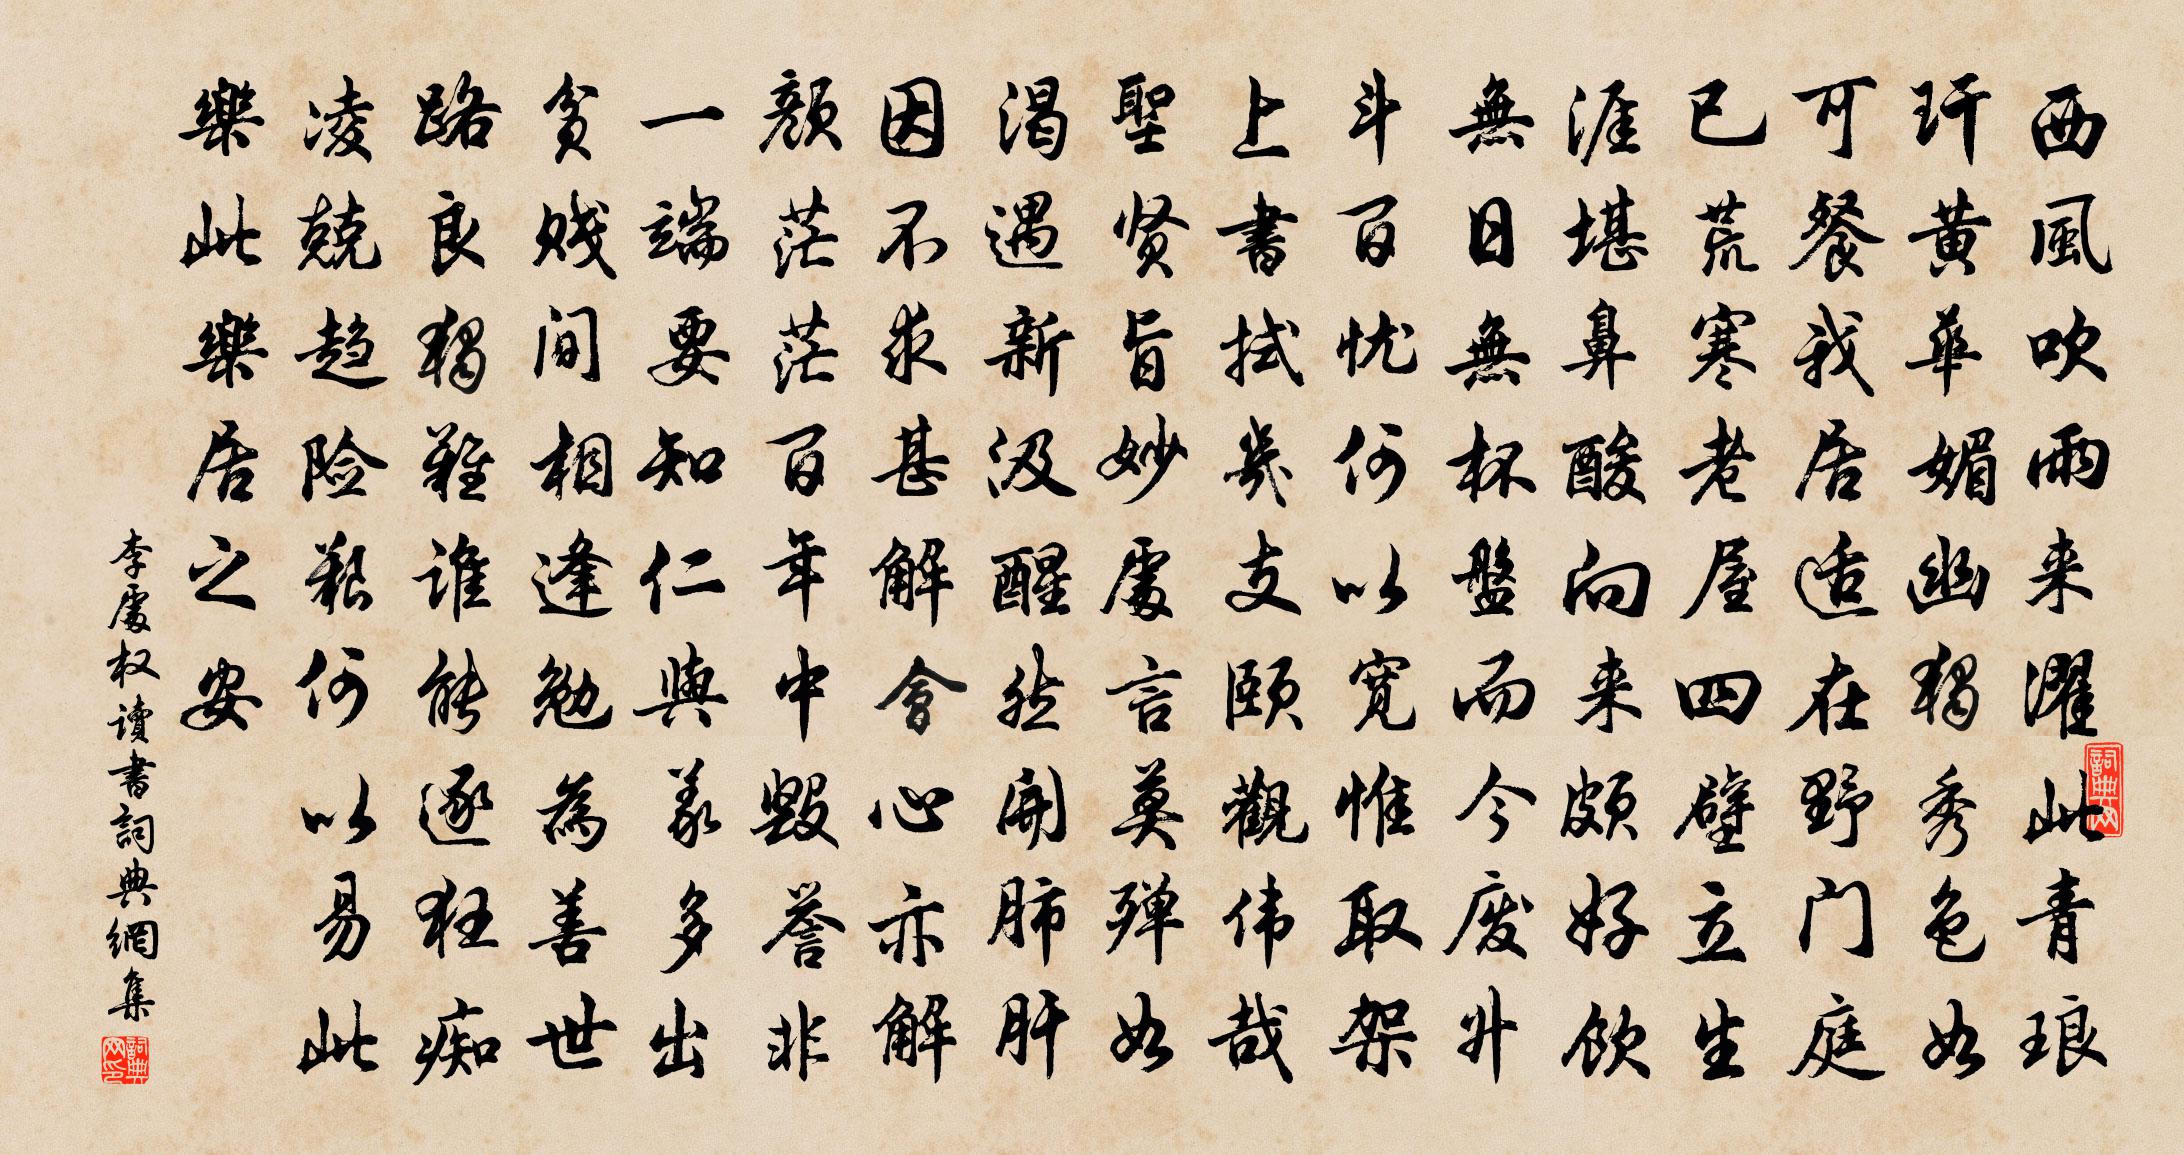 西風吹雨来濯此青琅
玕黄華媚幽獨秀色如
可餐我居适在野门庭
已荒寒老屋四壁立生
涯堪鼻酸向来頗好飲
無日無杯盤而今废升
斗百忧何以宽惟取架
上書拭幾支頤觀伟哉
聖贤旨妙處言莫殚如
渴遇新汲醒然開肺肝
因不求甚解會心亦解
顏茫茫百年中毁誉非
一端要知仁與義多出
贫贱间相逢勉為善世
路良獨難谁能逐狂痴
凌兢趋险艰何以易此
樂此樂居之安
李處权讀書詞典網集
詞典网
詞典网印